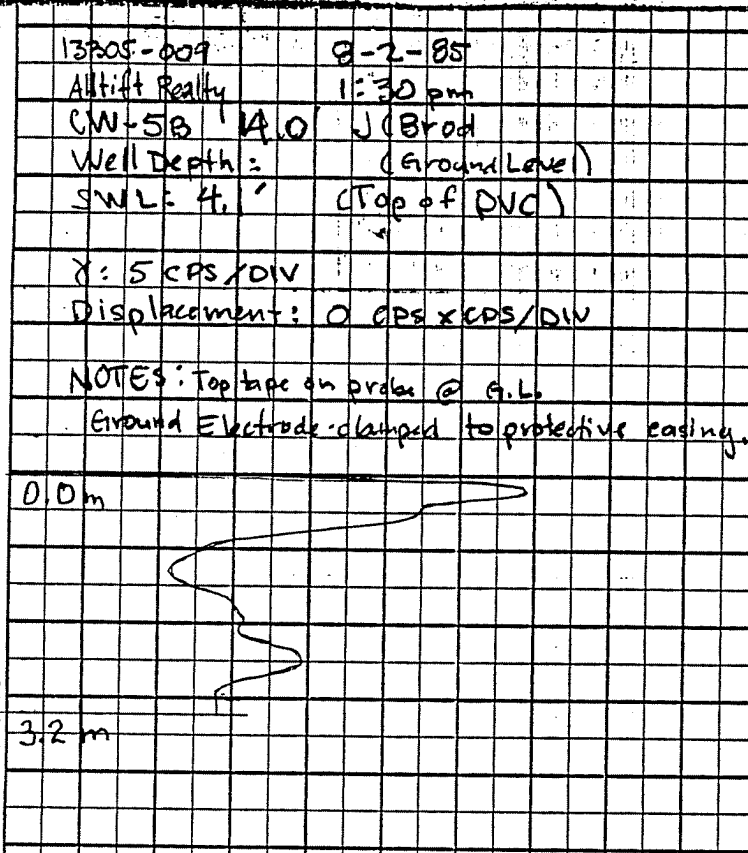 13305-009 8-2-85
Alltift Realty 1:30 pm
CW-5B 14.0' J(Brod
Well Depth: (Ground Level)
SWL: 4.1' (Top of PVC)
γ: 5 CPS/DIV
Displacement: 0 CPS x CPS/DIV
NOTES: Top tape on probe @ G.L.
Ground Electrode clamped to protective casing.
0.0 m
3.2 m